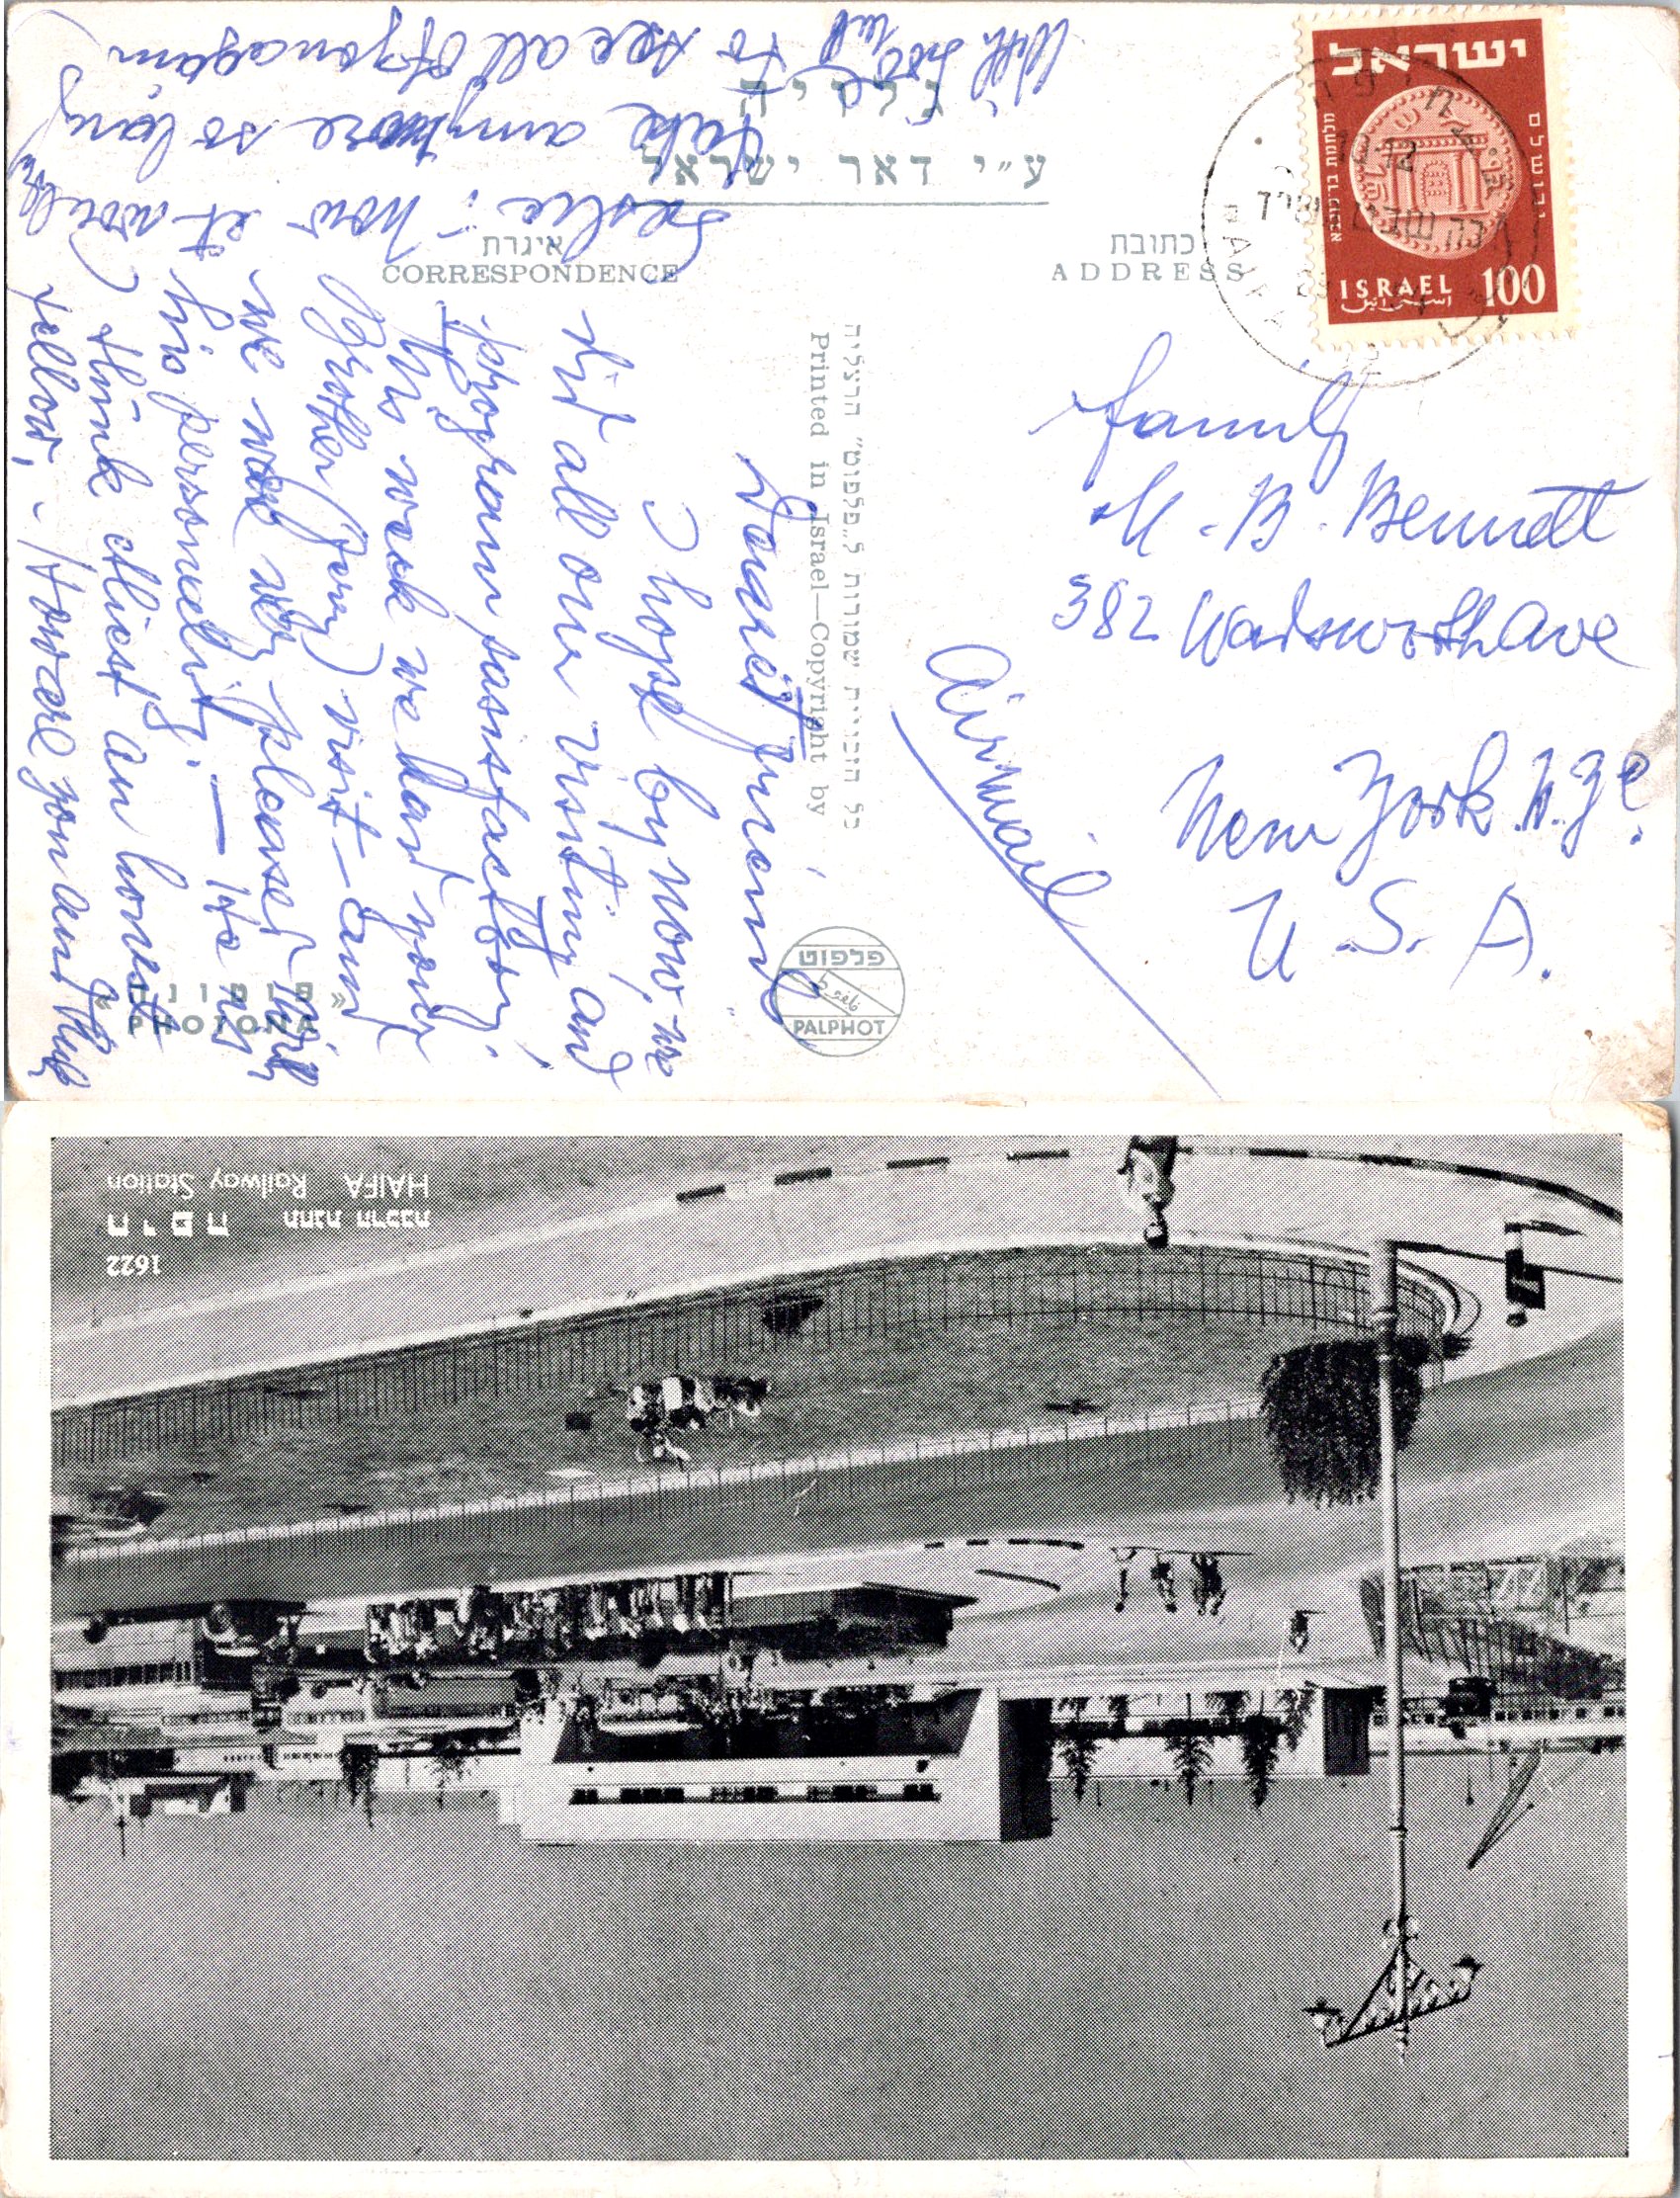 ישראל
ירושלים
מלחמת בר כוכבא
ISRAEL 100
اسرائيل
חיפה
HAIFA
גלויה
ע״י דאר ישראל
איגרת
CORRESPONDENCE
כתובת
ADDRESS
כל הזכויות שמורות ל„פלפוט״ הרצליה
Printed in Israel—Copyright by
פלפוט
PALPHOT
PHOTONA
family
M. B. Bennett
382 Wadsworth Ave
New York N.Y.
U.S.A.
Airmail
Dearest friends
I hope by now, we
did all our visiting and
program sansfactory.
This week we had your
brother Jerry visit— and
we were very pleased with
his personality. — He is
I think at least an honest
fellow, — How are you and the
Leslie; now it would
take anymore so long
to see all of you again
With love
1622
חיפה תחנת הרכבת
HAIFA Railway Station